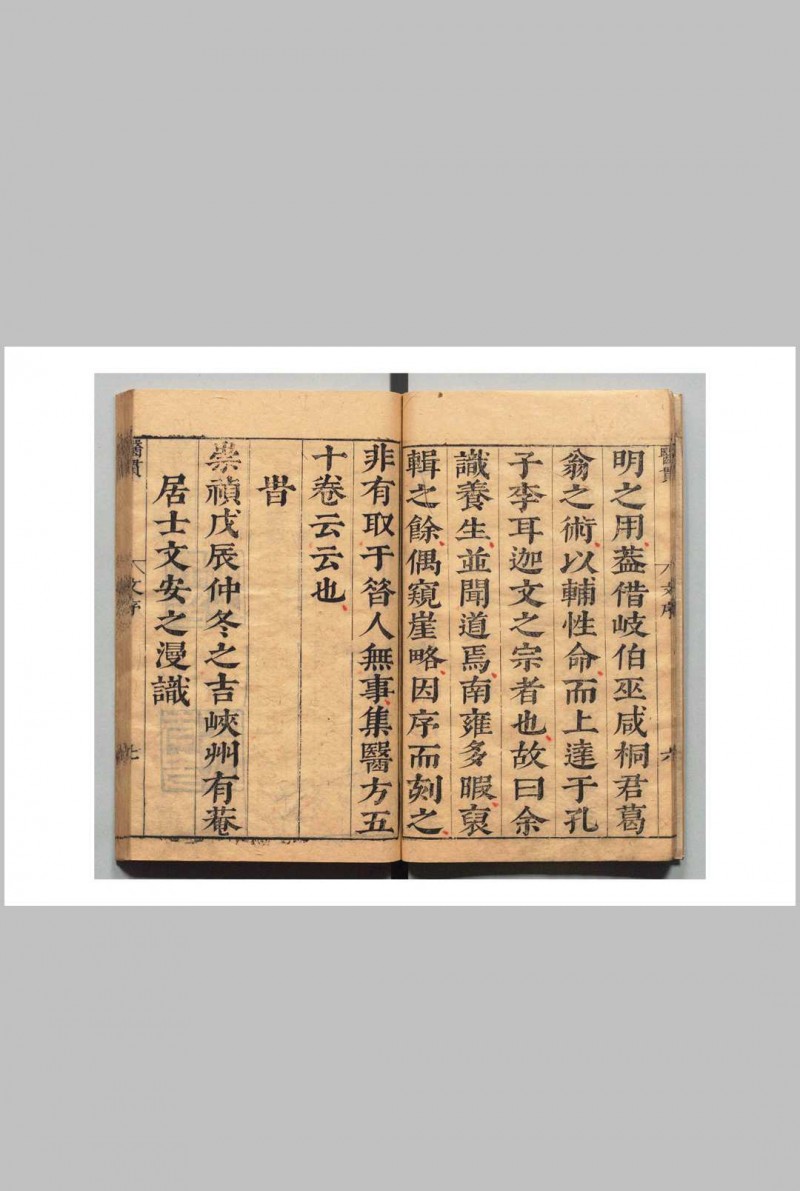 醫貫
文序
六
明之用蓋借岐伯巫咸桐君葛
翁之術以輔性命而上達于孔
子李耳迦文之宗者也故曰余
識養生並聞道焉南雍多暇裒
輯之餘偶窺崖略因序而刻之
非有取于昝人無事集醫方五
十卷云云也
旹
崇禎戊辰仲冬之吉峽州有菴
居士文安之漫識
醫貫
文序
七